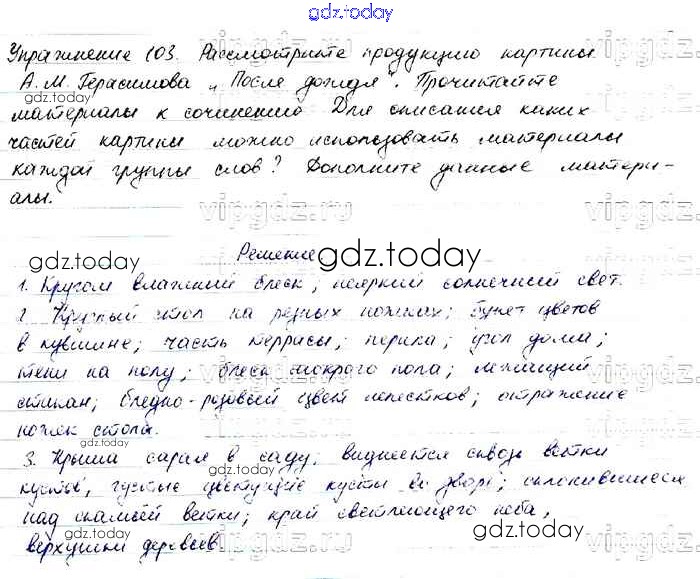 gdz.today
Упражнение 103. Рассмотрите продукцию картины
А. М. Герасимова „После дождя". Прочитайте
gdz.today
материалы к сочинению Для описания каких
частей картины можно использовать материалы
каждой группы слов? Дополните данные матери-
алы.
vipgdz.ru
Решение
gdz.today
1. Кругом влажный блеск, неяркий солнечный свет.
2. Круглый стол на резных ножках; букет цветов
в кувшине; часть террасы; перила; угол дома;
тени на полу; блеск мокрого пола; лежащий
стакан; бледно-розовый цвет лепестков; отражение
ножек стола.
gdz.today
3. Крыша сарая в саду, виднеется сквозь ветки
кустов, густые цветущие кусты во дворе; склонившиеся
над скамьей ветки; край светлеющего неба,
gdz.today
верхушки деревьев